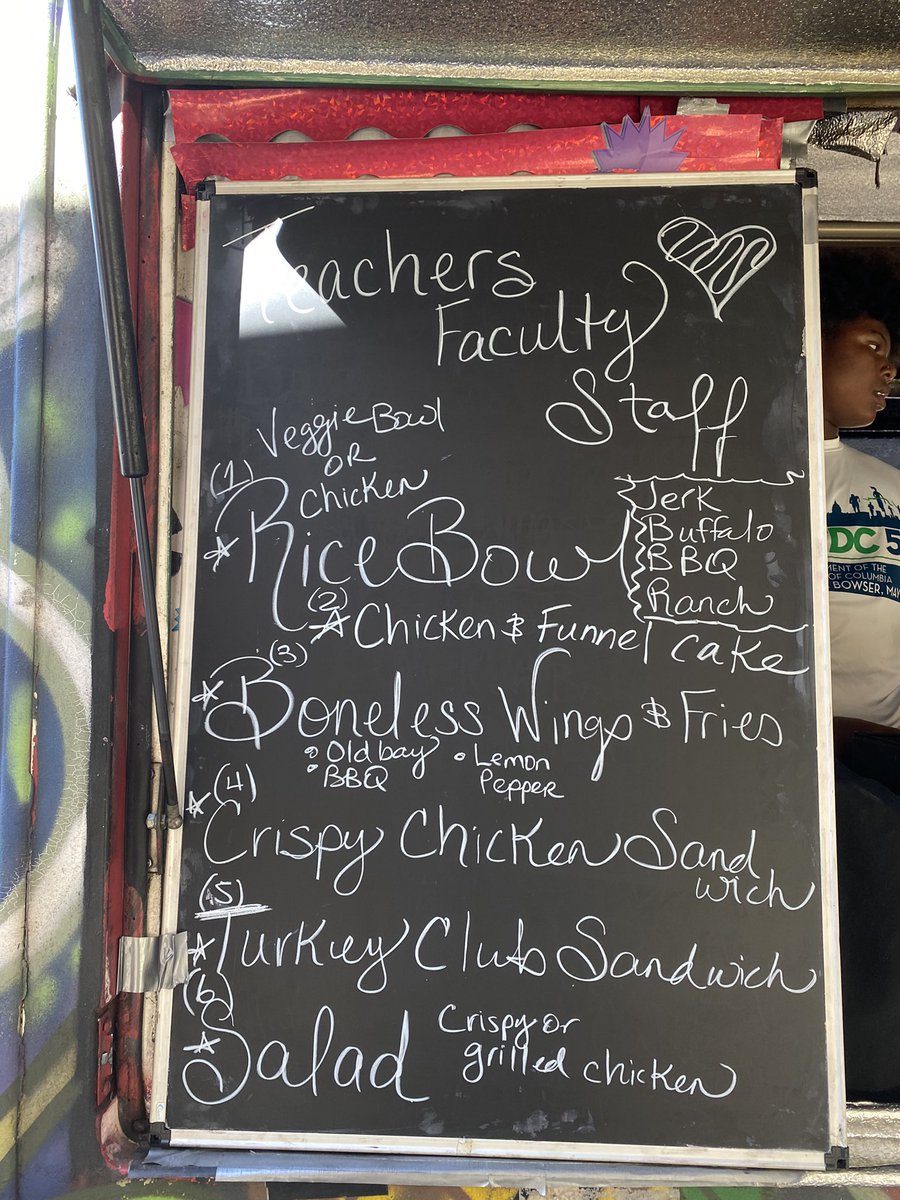 Teachers
Faculty
Staff
Veggie Bowl
OR
Chicken
(1)
Rice Bowl
Jerk
Buffalo
BBQ
Ranch
(2)
Chicken & Funnel cake
(3)
Boneless Wings & Fries
Old bay
BBQ
Lemon
Pepper
(4)
Crispy Chicken Sand
wich
(5)
Turkey Club Sandwich
(6)
Salad
Crispy or
grilled chicken
DC 5
MENT OF THE
OF COLUMBIA
BOWSER, MAY